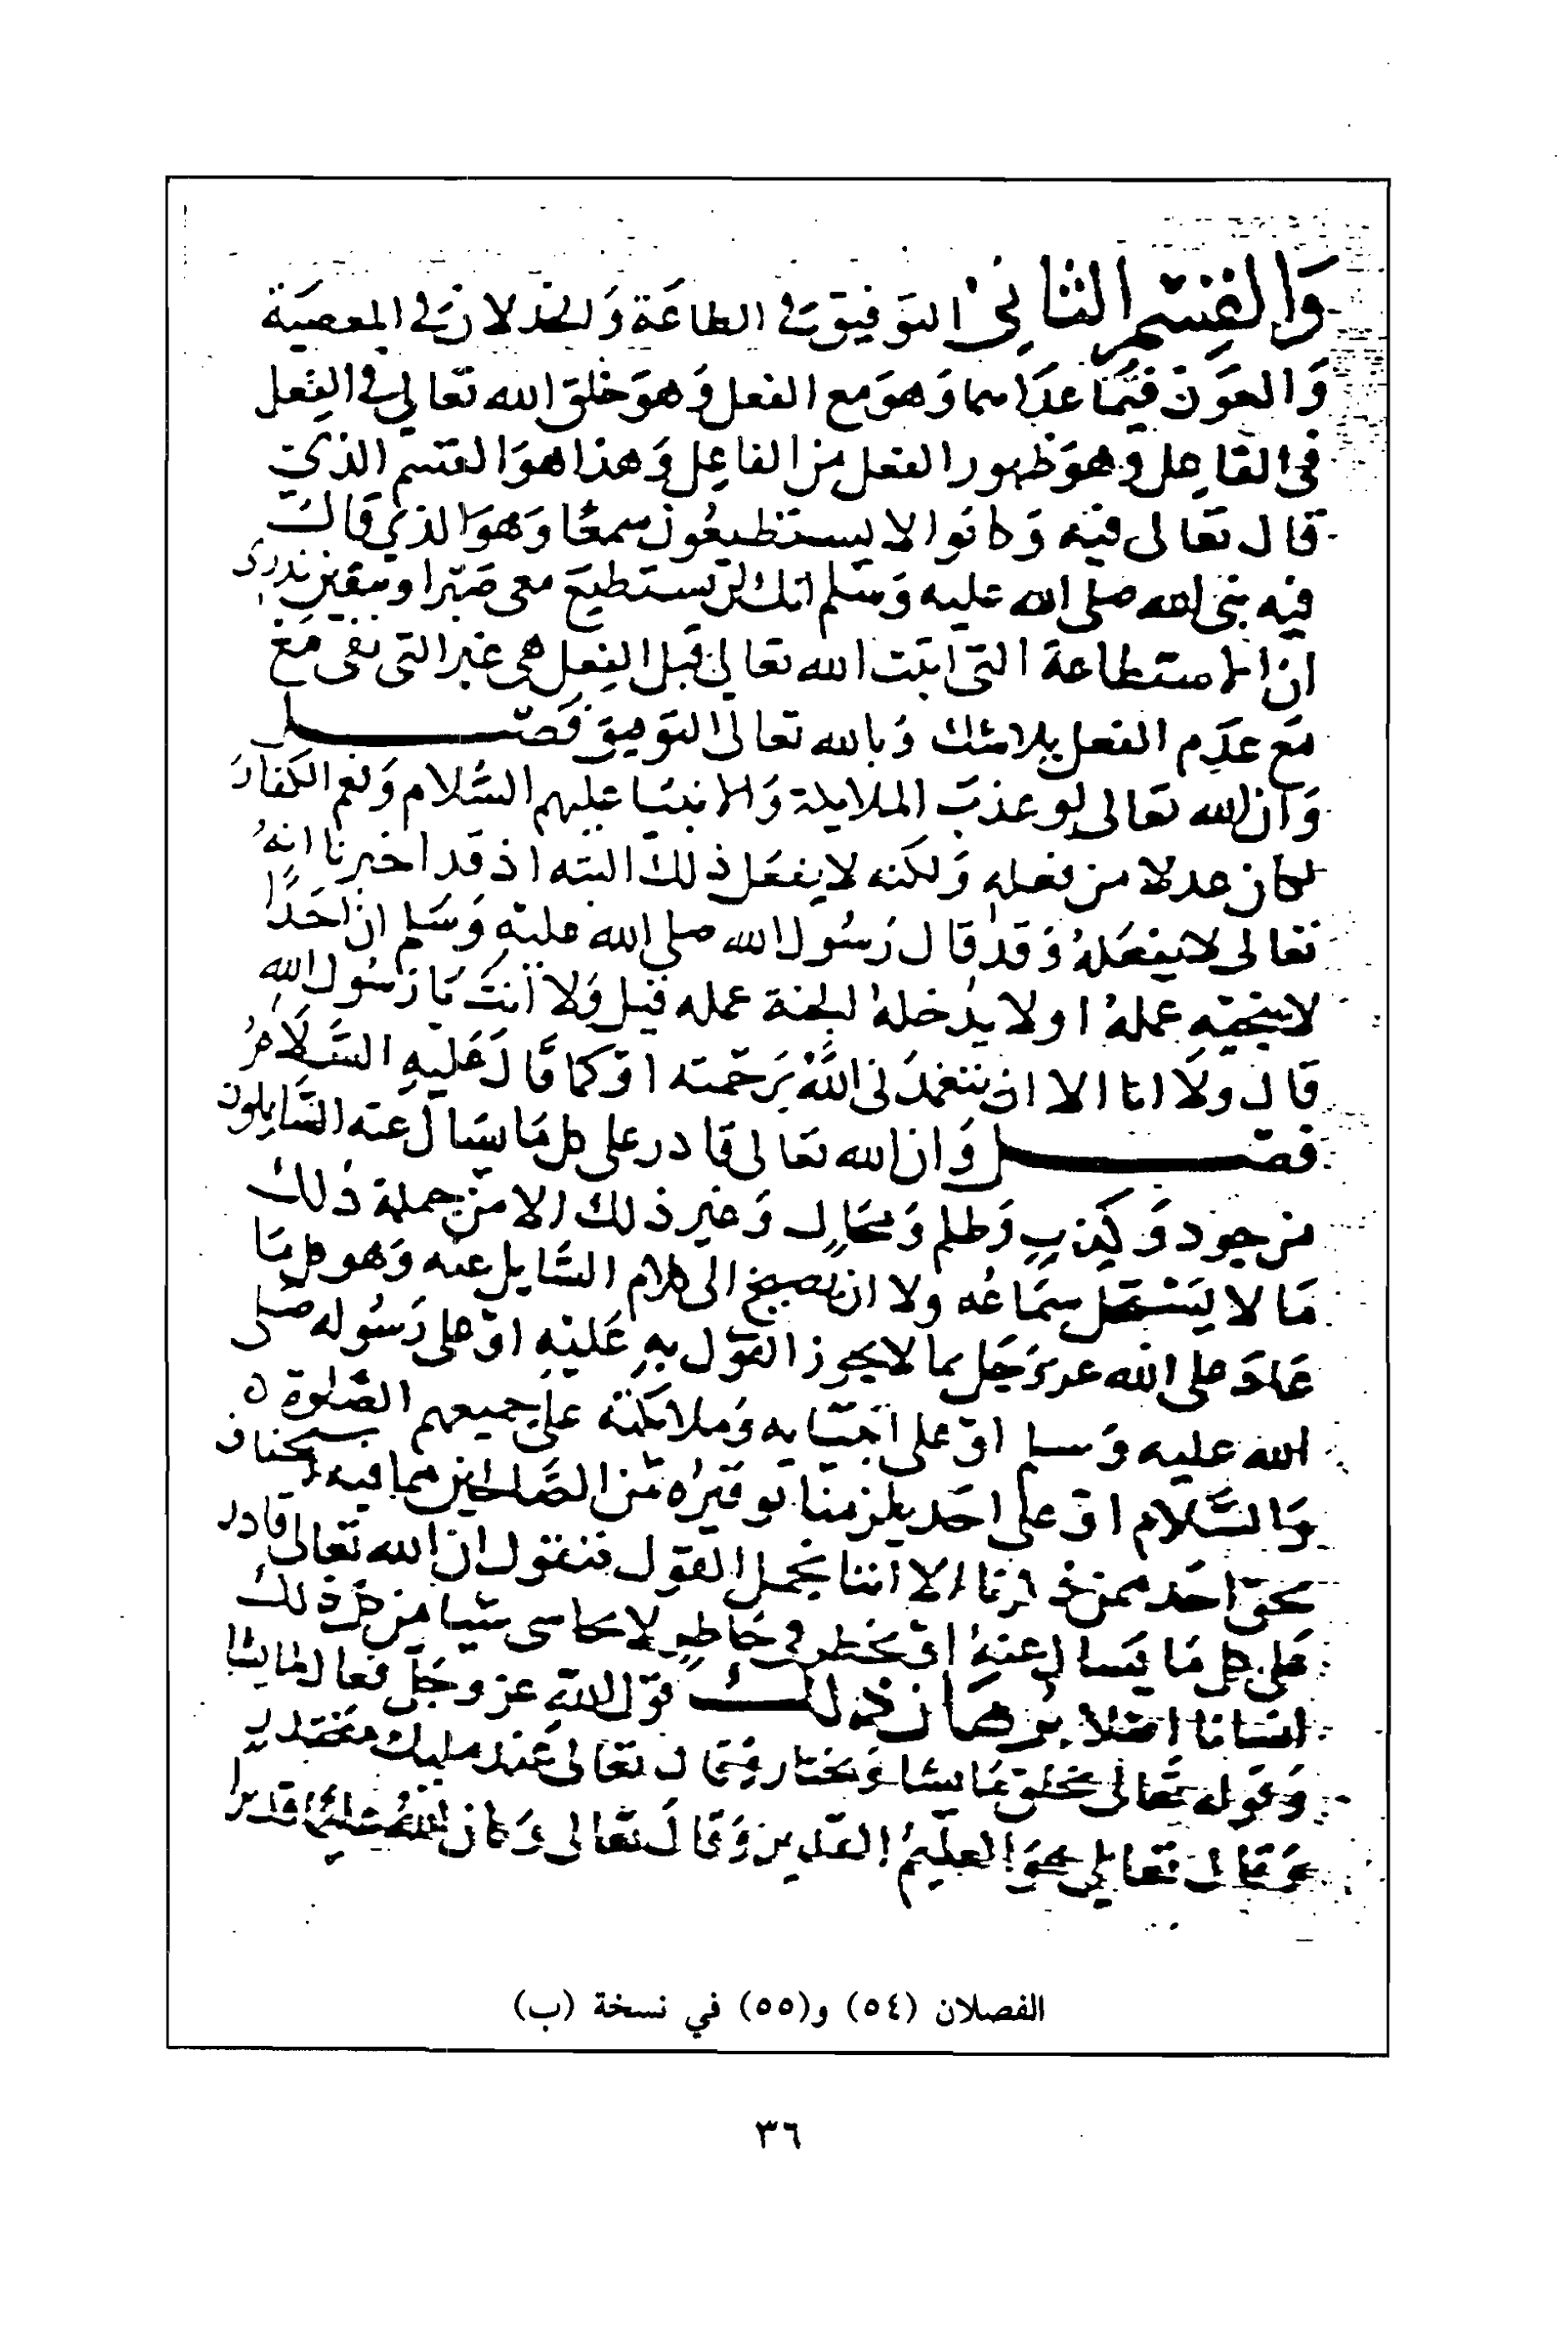 وَالقِسْمُ الثانى التوفيق فى الطاعَة وَالخذلان فى المعصيَة
وَالعَون فيمَا عدَاهما وَهوَ مع الفعل وَهوَ خلق الله تعالى فى الفعل
فى الفاعل وَهوَ ظهور الفعل من الفاعِل وَهذا هوَ القسم الذى
قال تعالى فيه وَكانوا لا يستطيعُون سمعًا وَهوَ الذى قال
فيه نبى الله صلى الله عليه وَسَلم انك لن تستطيعَ معى صَبرا وبيقين ندرى
ان الاستطاعة التى اثبت الله تعالى قبل الفِعل هى غير التى نفى مع
مَع عدَم الفعل بلا شك وَبالله تعالى التوفيق فَصل
وَان الله تعالى لو عذبَ الملايكة وَالانبيا عليهم السّلام وَنعم الكفارَ
لكان عدلا من فعله وَلكنه لا يفعَل ذلك البته اذ قد اخبرنا انهُ
تعالى لا يفعَلهُ وَقد قال رَسُول الله صلى الله عليهِ وَسَلم ان احَدًا
لا ينجيه عملهُ او لا يدخلهُ الجنة عمله قيل وَلا أنتَ يَا رَسُول الله
قال ولا انا الا ان يتغمدَنى اللهُ برَحمته اوْ كما قَالَ عَليهِ السَّلَامُ
فصل وَان الله تعَالى قادر على كل مَا يسَال عنه السَّايلون
من جور وَكذبٍ وَظلم وَمحَالٍ وَغير ذلك الا من جملة ذلك
مَا لا يَسْتحل سمَاعُه ولا ان نصيخ الى كلام السَّايل عنه وَهو كل مَا
عَادَ على الله عز وَجَل بما لا يجوز القوْل بهِ عَليْهِ اوْ على رَسُوله صَلى
الله عليه وَسلم اوْ على انبيَايه وَملائكته على جميعهم الصَّلوة
وَالسَّلام اوْ على احَد يلزمنا توقيرُه مّن الصَّالحين مما فيه استخفاف
بحق احَد ممن ذكرنا الا اننا نجمل القول فنقول ان الله تعَالى قادر
عَلى كل مَا يَسال عنهُ اوْ يخطر فى خَاطرٍ لا نحاشى شيا من كل ذلك
انسانا اصلا برهَان ذلك قوْل الله عز وجَل فعال لما يشا
وَقوله تعَالى يخلق مَا يشا وَيختار وَقال تعَالى عند مليك مقتدر
وَقال تعالى هوَ العليمُ القدير وَقال تعَالى وَكان اللهُ عليمًا قديرا
الفصلان (٥٤) و(٥٥) في نسخة (ب)
٣٦